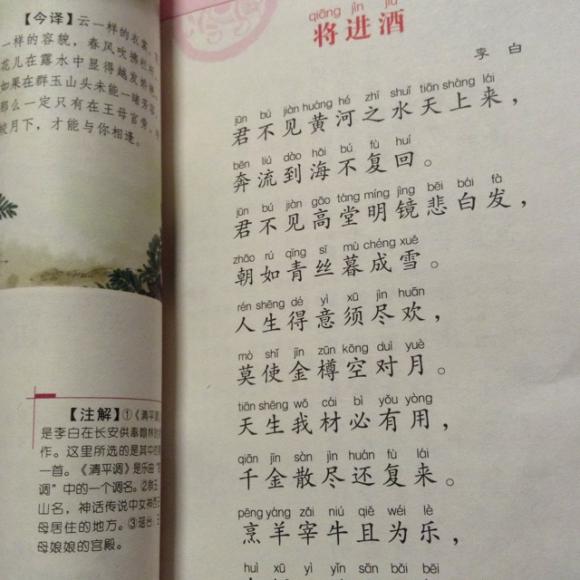 【今译】云一样的衣裳
一样的容貌，春风吹拂
花儿在露水中显得越发
如果在群玉山头未能一睹芳
那么一定只有在王母宫旁
皎月下，才能与你相逢。
【注解】①《清平调》
是李白在长安供奉翰林
作。这里所选的是其中
一首。《清平调》是乐曲
调”中的一个调名。②
山名，神话传说中女神西
母居住的地方。③瑶台：
母娘娘的宫殿。
qiāng jìn jiǔ
将进酒
李 白
jūn bú jiàn huáng hé zhī shuǐ tiān shàng lái
君不见黄河之水天上来，
bēn liú dào hǎi bú fù huí
奔流到海不复回。
jūn bú jiàn gāo táng míng jìng bēi bái fà
君不见高堂明镜悲白发，
zhāo rú qīng sī mù chéng xuě
朝如青丝暮成雪。
rén shēng dé yì xū jìn huān
人生得意须尽欢，
mò shǐ jīn zūn kōng duì yuè
莫使金樽空对月。
tiān shēng wǒ cái bì yǒu yòng
天生我材必有用，
qiān jīn sàn jìn huán fù lái
千金散尽还复来。
pēng yáng zǎi niú qiě wéi lè
烹羊宰牛且为乐，
huì xū yì yǐn sān bǎi bēi